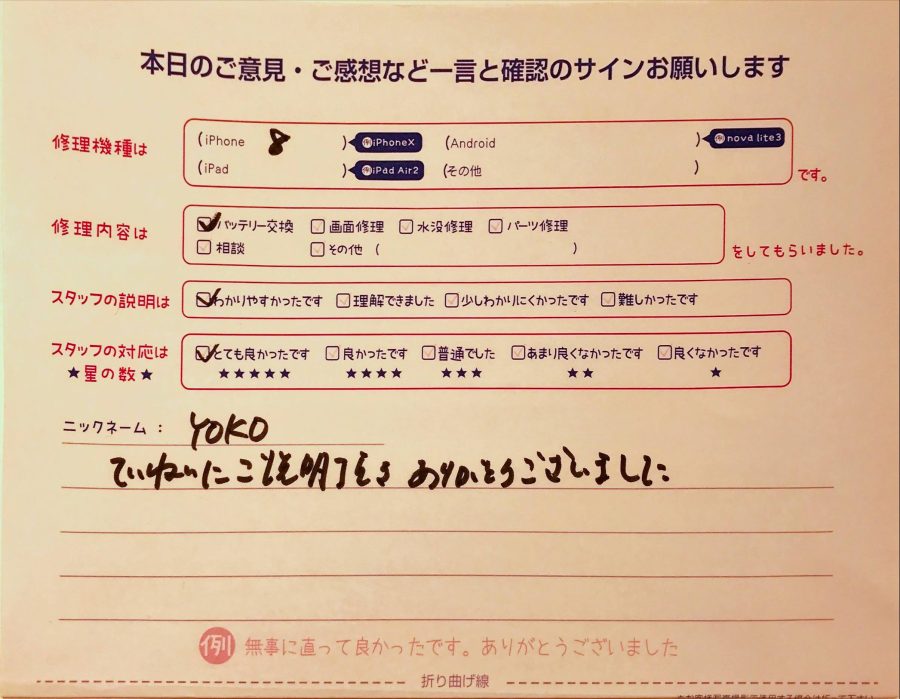 本日のご意見・ご感想など一言と確認のサインお願いします
修理機種は (iPhone 8 ) 例iPhoneX (Android ) 例nova lite3
(iPad ) 例iPad Air2 (その他 ) です。
修理内容は バッテリー交換 画面修理 水没修理 パーツ修理
相談 その他 ( ) をしてもらいました。
スタッフの説明は わかりやすかったです 理解できました 少しわかりにくかったです 難しかったです
スタッフの対応は とても良かったです 良かったです 普通でした あまり良くなかったです 良くなかったです
★星の数★ ★★★★★ ★★★★ ★★★ ★★ ★
ニックネーム: YOKO
ていねいにご説明頂き ありがとうございました
例 無事に直って良かったです。ありがとうございました
折り曲げ線